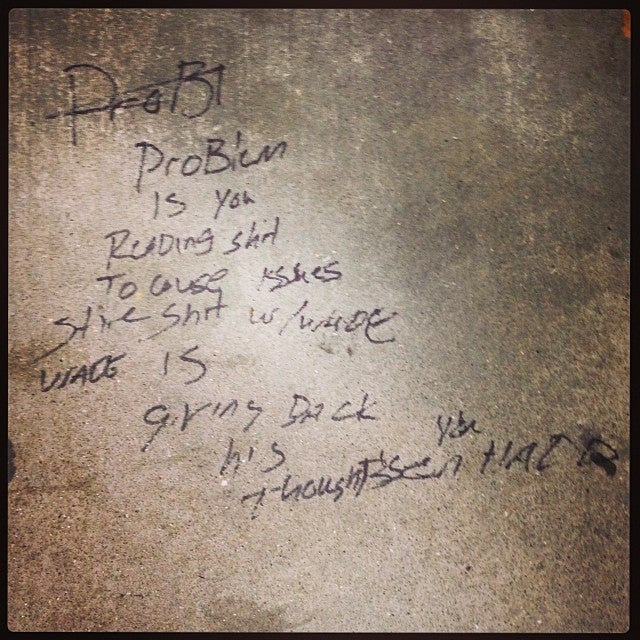 ProBl
ProBlem
IS you
Reading shit
To cause issues
stire shit w/ WADE
WADE IS
giving Back
his
thoughts you